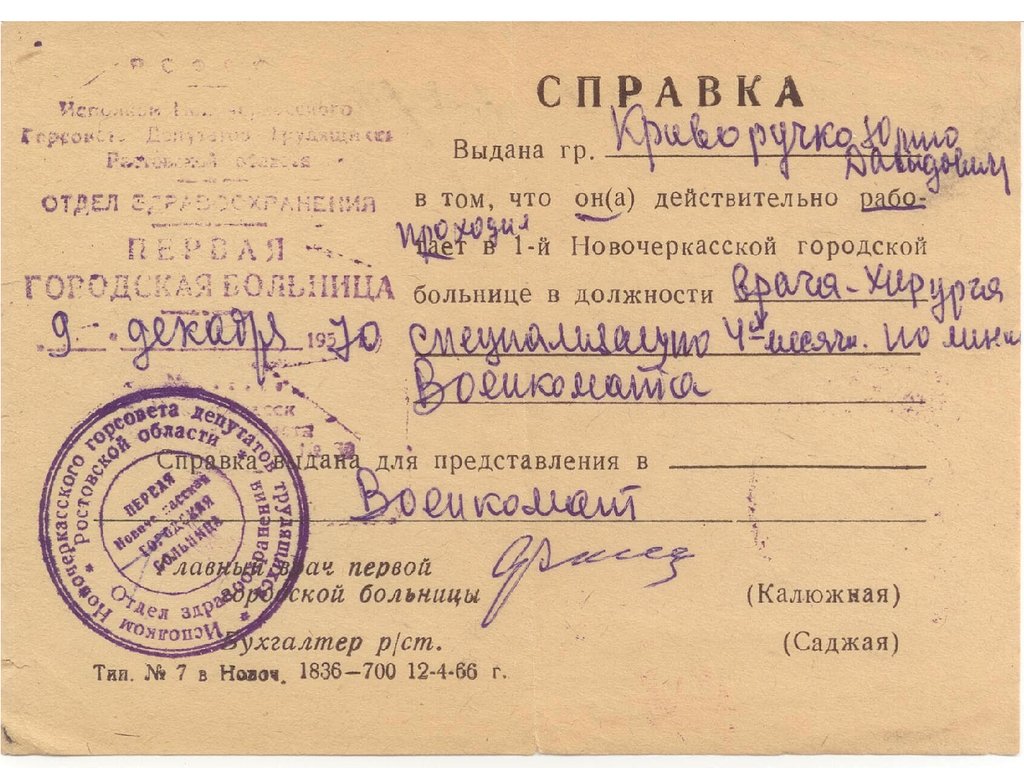 РСФСР
Исполком Новочеркасского
Горсовета Депутатов Трудящихся
Ростовской области
ОТДЕЛ ЗДРАВООХРАНЕНИЯ
ПЕРВАЯ
ГОРОДСКАЯ БОЛЬНИЦА
„9“ декабря 1970
СПРАВКА
Выдана гр. Криворучко Юрию
Давыдовичу
в том, что он(а) действительно рабо-
проходил
тает в 1-й Новочеркасской городской
больнице в должности врача-хирурга
специализацию 4х месячн. по линии
Военкомата
Справка выдана для представления в
Военкомат
Главный врач первой
городской больницы (Калюжная)
Бухгалтер р/ст. (Саджая)
Тип. № 7 в Новоч. 1836—700 12-4-66 г.
Исполком Новочеркасского горсовета депутатов трудящихся
Ростовской области
Отдел здравоохранения
ПЕРВАЯ
Новочеркасская
ГОРОДСКАЯ
БОЛЬНИЦА